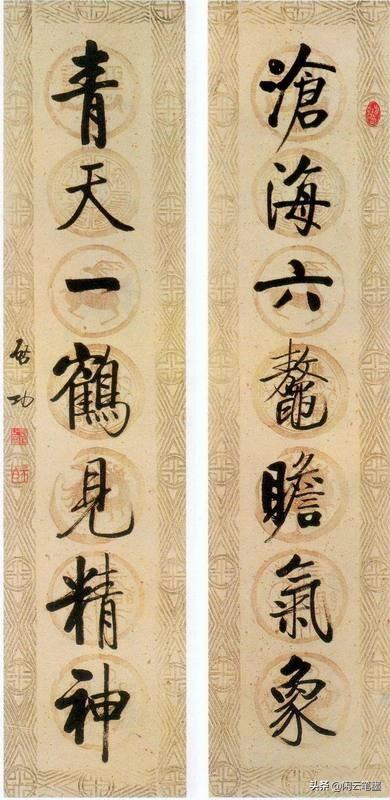 滄海六鼇瞻氣象
青天一鶴見精神
啟功
头条@闲云笔墨